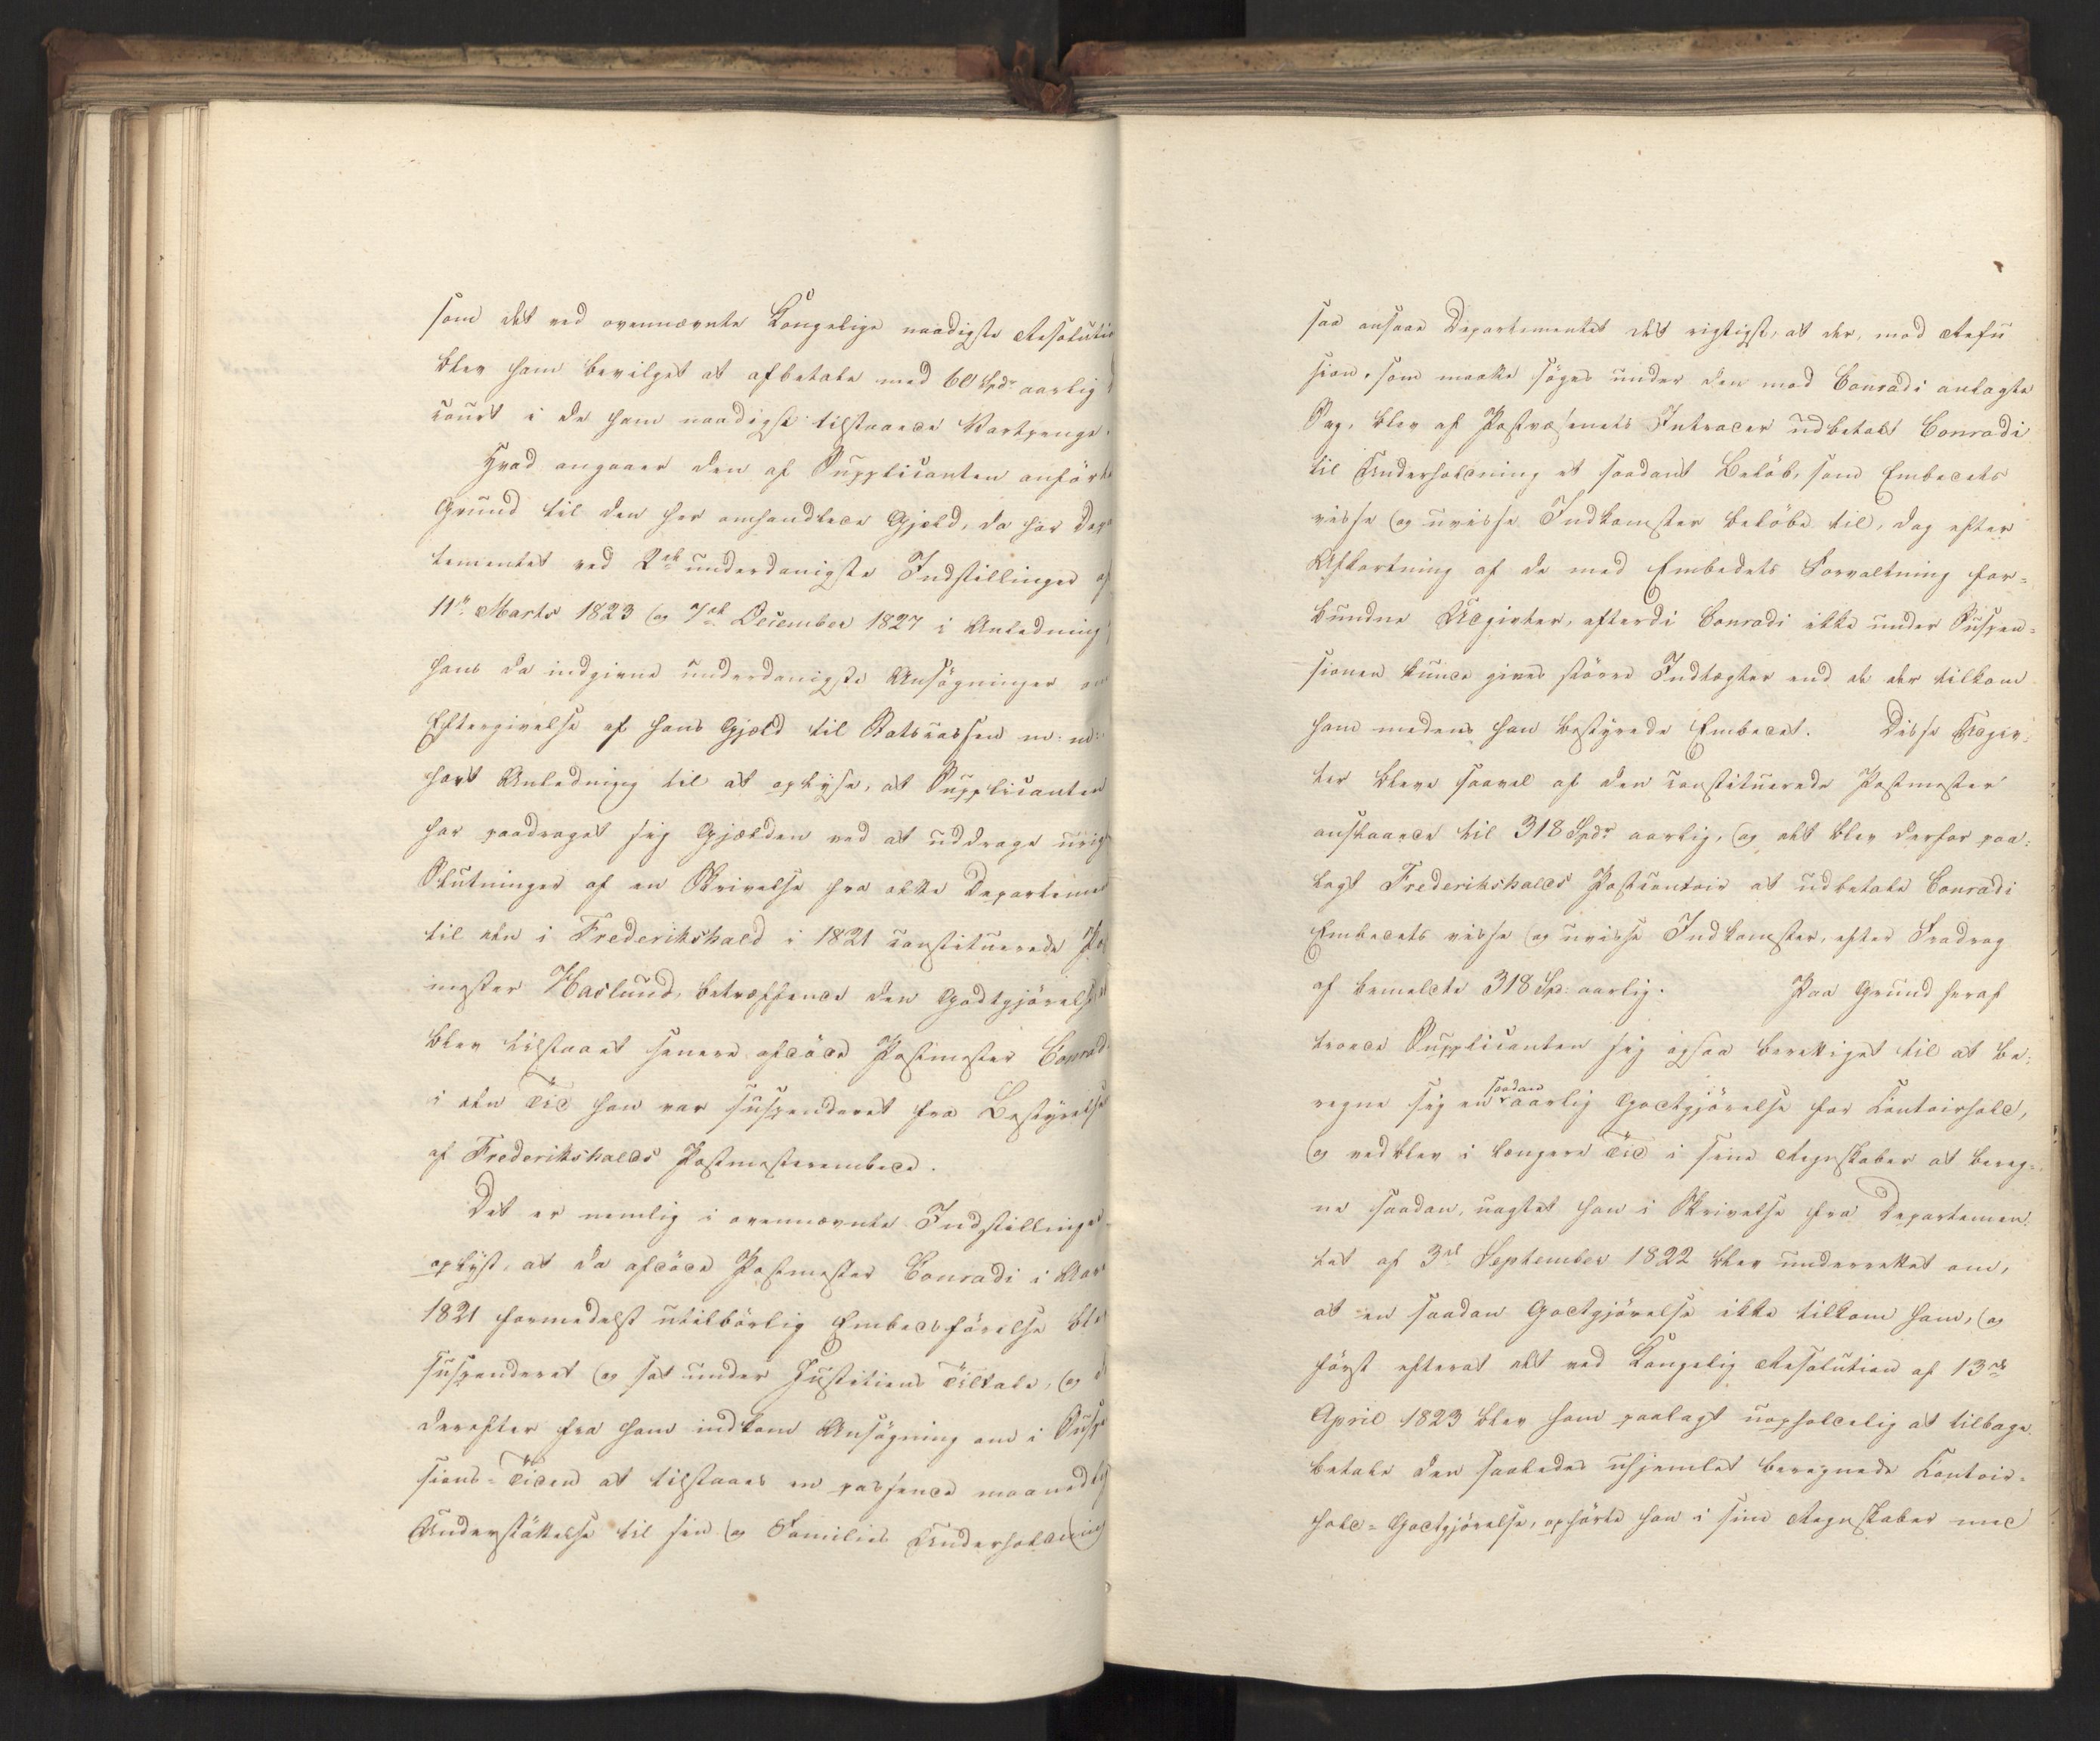 som det ved ovennævnte Kongelige naadigste Resolutio
blev ham bevilget at afbetale med 60 Spdr aarlig
court i de ham naadigst tilstaaede Vartpenge.
Hvad angaaer den af Supplicanten anförte
Grund til den her omhandlede Gjeld, da har Depa
tementet ved 2de underdanigste Indstillinger af
11te Marts 1823 og 7de December 1827 i Anledning
hans da indgivne underdanigste Ansögninger om
Eftergivelse af hans Gjeld til Statscassen m: m:
havt Anledning til at oplyse, at Supplicanten
har paadraget sig Gjælden ved at uddrage urig
Slutninger af en Skrivelse fra dette Departeme
til den i Frederikshald i 1821 constituerede Po
mester Haslund, betræffende den Godtgjörelse
blev tilstaaet senere afdöde Postmester Conrad
i den Tid han var suspenderet fra Bestyrelse
af Frederikshalds Postmesterembede.
Det er nemlig i ovennævnte Indstillinger
oplyst, at da afdöde Postmester Conradi i Aar
1821 formedelst utilbörlig Embedsförelse ble
suspenderet og sat under Justitiens Tiltale, og d
derefter fra ham indkom Ansögning om i Susp
sions-Tiden at tilstaaes en passende maanedlig
Understöttelse til sin og Families Underholdning
saa ansaae Departementet det rigtigst, at der, mod Refu
sion, som maatte söges under den mod Conradi anlagte
Sag, blev af Postvæsenets Intrader udbetalt Conradi
til Underholdning et saadant Belöb, som Embedets
visse og uvisse Indkomster belöbe til, dog efter
Afkortning af de med Embedets Forvaltning for-
bundne Udgivter, efterdi Conradi ikke under Suspen-
sionen kunde gives större Indtægter end de der tilkom
ham medens han bestyrede Embedet. Disse Udgiv-
ter bleve saavel af den constituerede Postmester
anslaaede til 318 Spdr aarlig, og det blev derfor paa-
lagt Frederikshalds Postcontoir at udbetale Conradi
Embedets visse og uvisse Indkomster, efter Fradrag
af bemeldte 318 Sp: aarlig. Paa Grund heraf
troede Supplicanten sig ogsaa berettiget til at be-
regne sig en saadan aarlig Godtgjörelse for Contoirhold,
og vedblev i længere Tid i sine Regnskaber at bereg-
ne saadan, uagtet han i Skrivelse fra Departemen
tet af 3de September 1822 blev underrettet om,
at en saadan Godtgjörelse ikke tilkom ham, og
först efterat det ved Kongelig Resolution af 13de
April 1823 blev ham paalagt uopholdelig at tilbage
betale den saaledes uhjemlet beregnede Contoir-
hold-Godtgjörelse, ophörte han i sine Regnskaber med